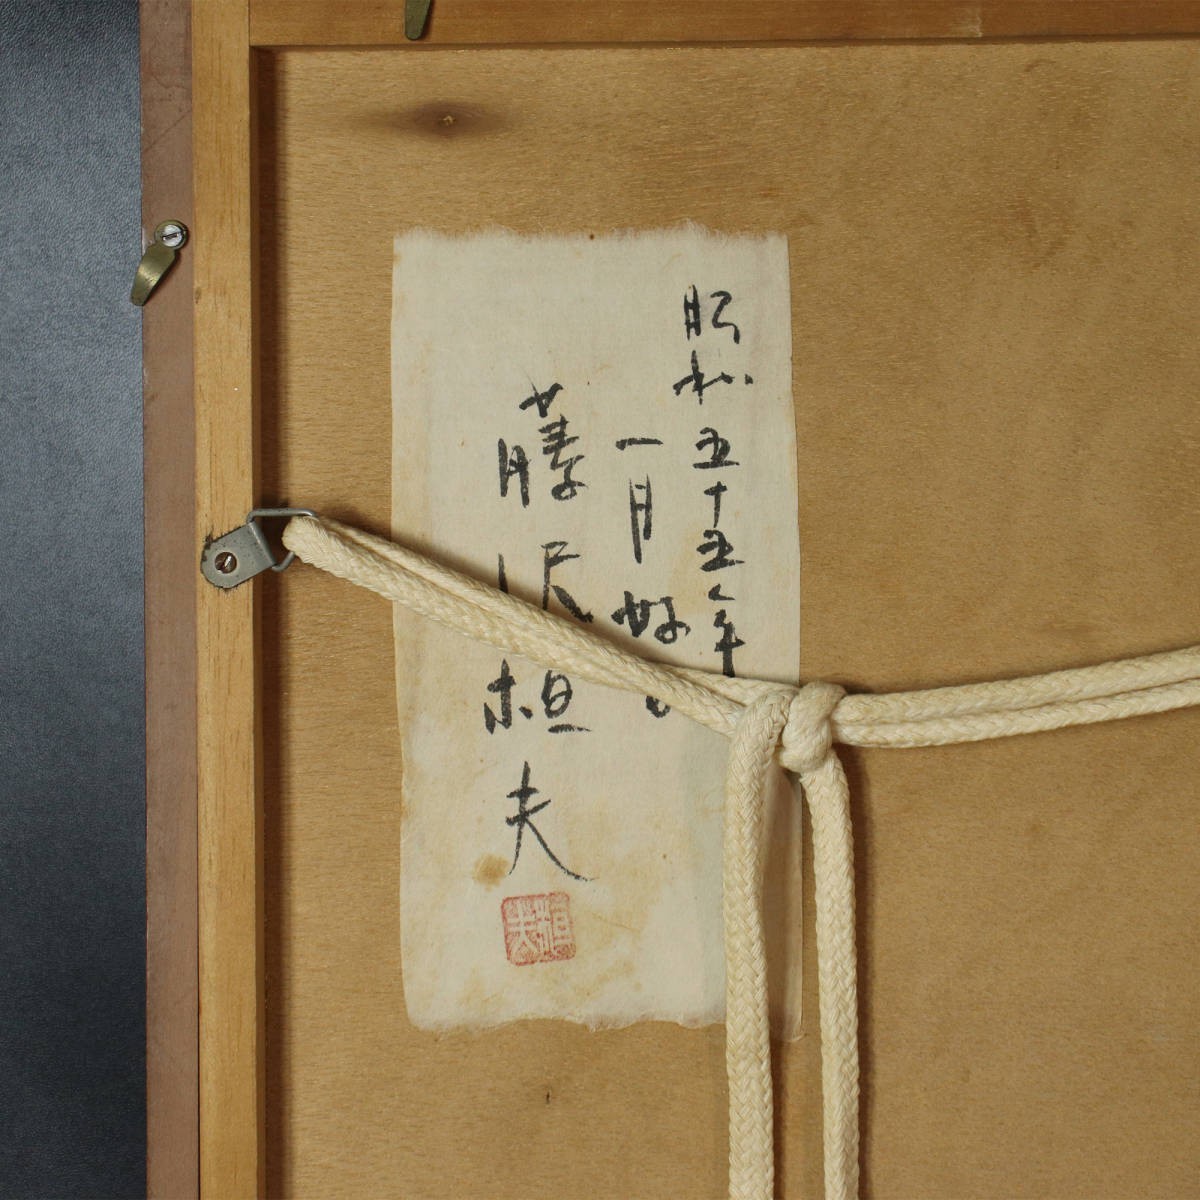 昭和五十五年
一月好日
藤沢桓夫
桓夫